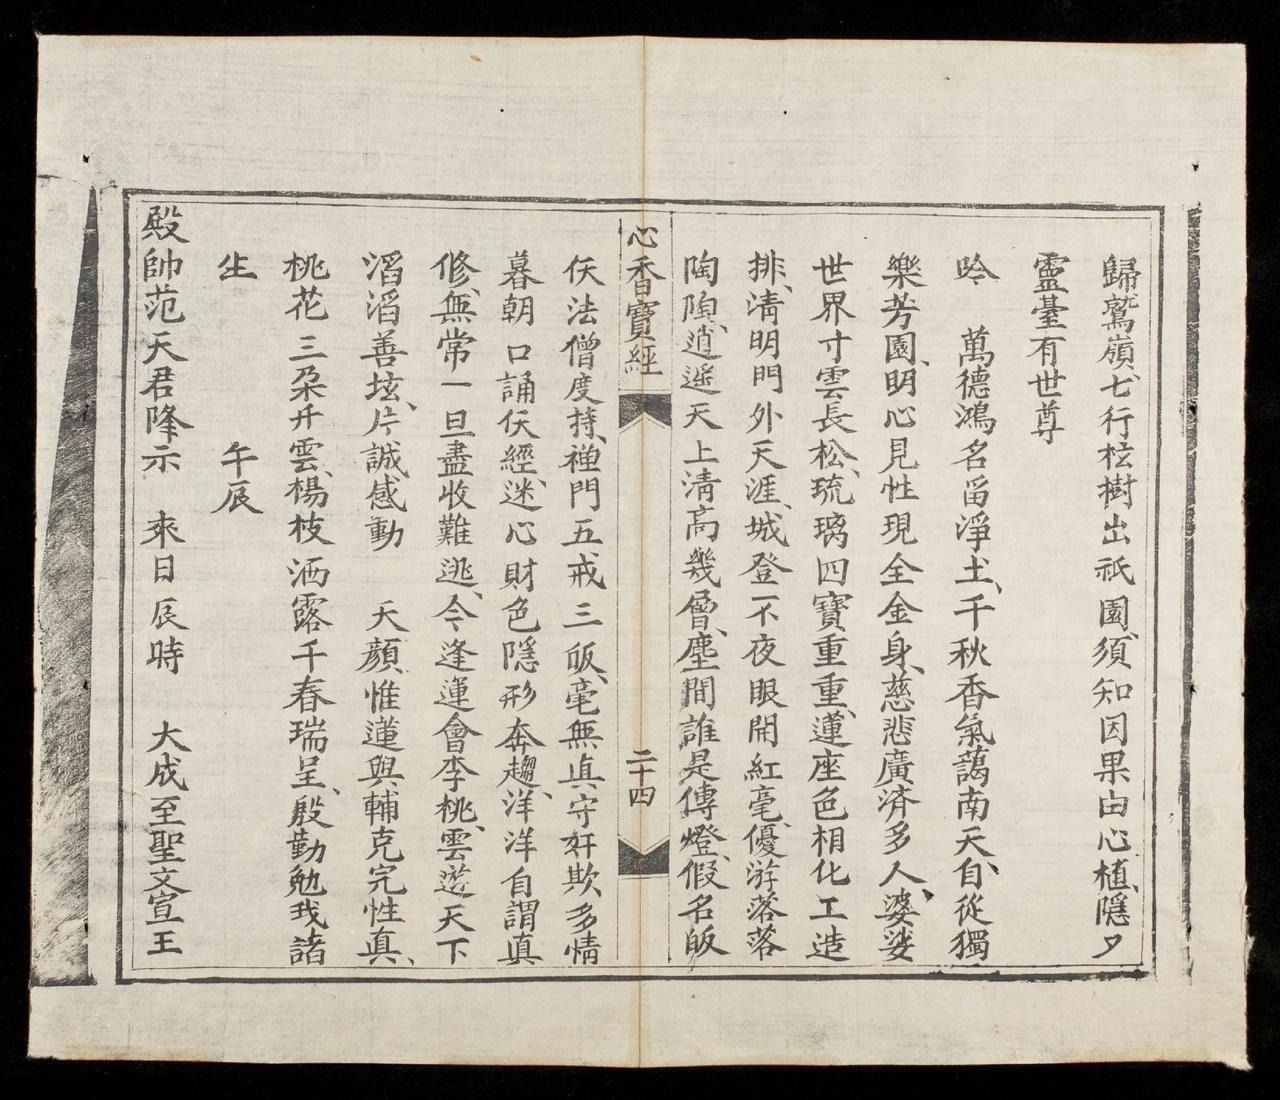 歸鷲嶺、七行桂樹出祇園、須知因果由心植、隱夕
靈臺有世尊
吟　萬德鴻名畱淨土、千秋香氣藹南天、自從獨
樂芳園、明心見性現全金身、慈悲廣济多人、婆娑
世界寸雲長松、琉璃四寶重重、蓮座色相化工造
排、淸明門外天涯、城登不夜眼開紅毫、優游落落
陶陶、逍遥天上淸高幾層、塵間誰是傳燈、假名皈
心香寶經　二十四
仸法僧度持、禅門五戒三皈、毫無真守奸欺、多情
暮朝口誦仸經、迷心財色隱形奔趨、洋洋自謂真
修、無常一旦盡收難逃、今逢運會李桃、雲遊天下
滔滔善坛、片誠感動　天顏、惟蓮與輔克完性真、
桃花三朶升雲、楊枝洒露千春瑞呈、殷勤勉我諸
生　午辰
殿帥范天君降示　來日辰時　大成至聖文宣王